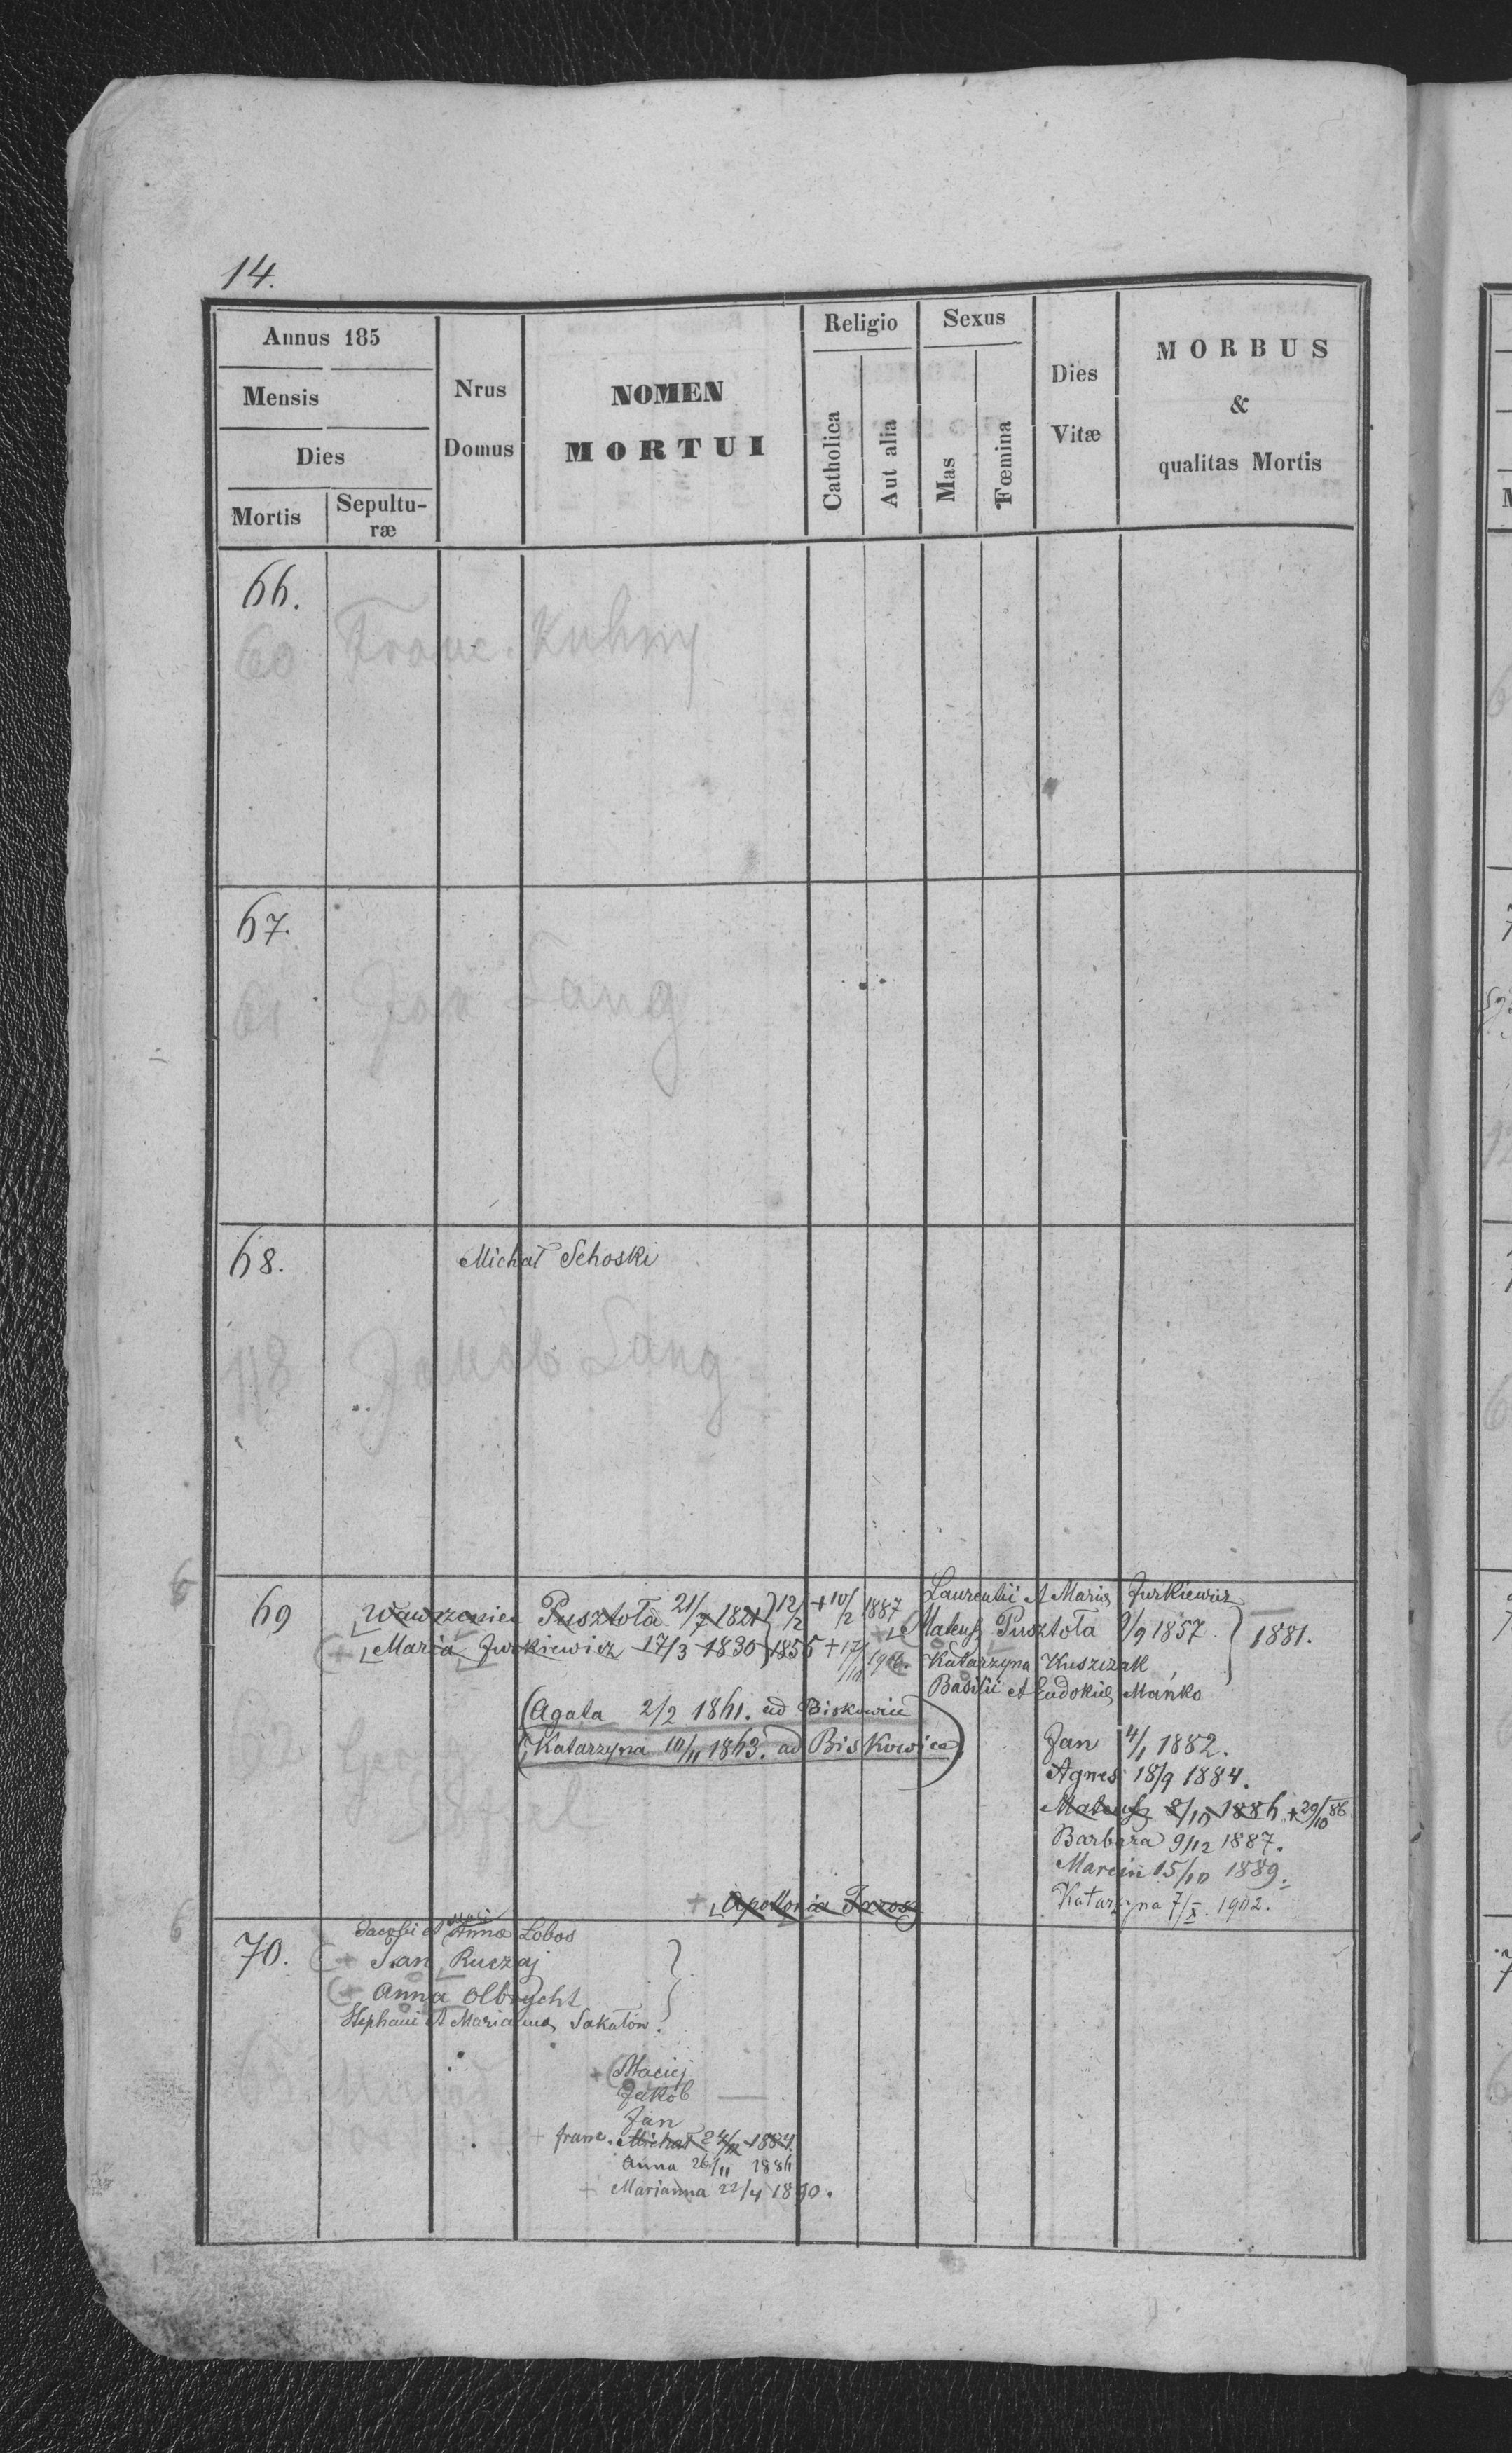 14.
Annus 185
Mensis
Dies
Mortis
Sepultu-
ræ
Nrus
Domus
NOMEN
MORTUI
Religio
Catholica
Aut alia
Sexus
Mas
Fœmina
Dies
Vitæ
MORBUS
&
qualitas Mortis
66.
60 Franc. Kuhny
67.
61 Jan Lang
68. Michał Schoski
118 Jakob Lang
6
69
Wawrzeniec Pusztoła 21/7 1821 } 12/2 +10/2 1887
Maria Jurkiewicz 17/3 1830 } 1855 +17/
Agata 2/2 1861. ad Biskowice
Katarzyna 10/11 1863. ad Biskowice
Laurentii et Maria Jurkiewicz
Mateusz Pusztoła 9/9 1857 } 1881.
Katarzyna Kuszczak
Basilii et Eudokie Mańko
Jan 4/1 1882.
Agnes 18/9 1884.
Mateusz 8/10 1886 +29/10 86
Barbara 9/12 1887.
Marcin 15/10 1889.
Katarzyna 7/X. 1902.
+ Apollonia
6
70.
Jacobi et Anna Lobos
Jan Ruczaj
Anna Olbrycht
Stephani et Marianna Sakałów.
+ Maciej
Jakób
Jan
+ franc. Michał 24/11 1884.
Anna 26/11 1886
+ Marianna 22/4 1890.